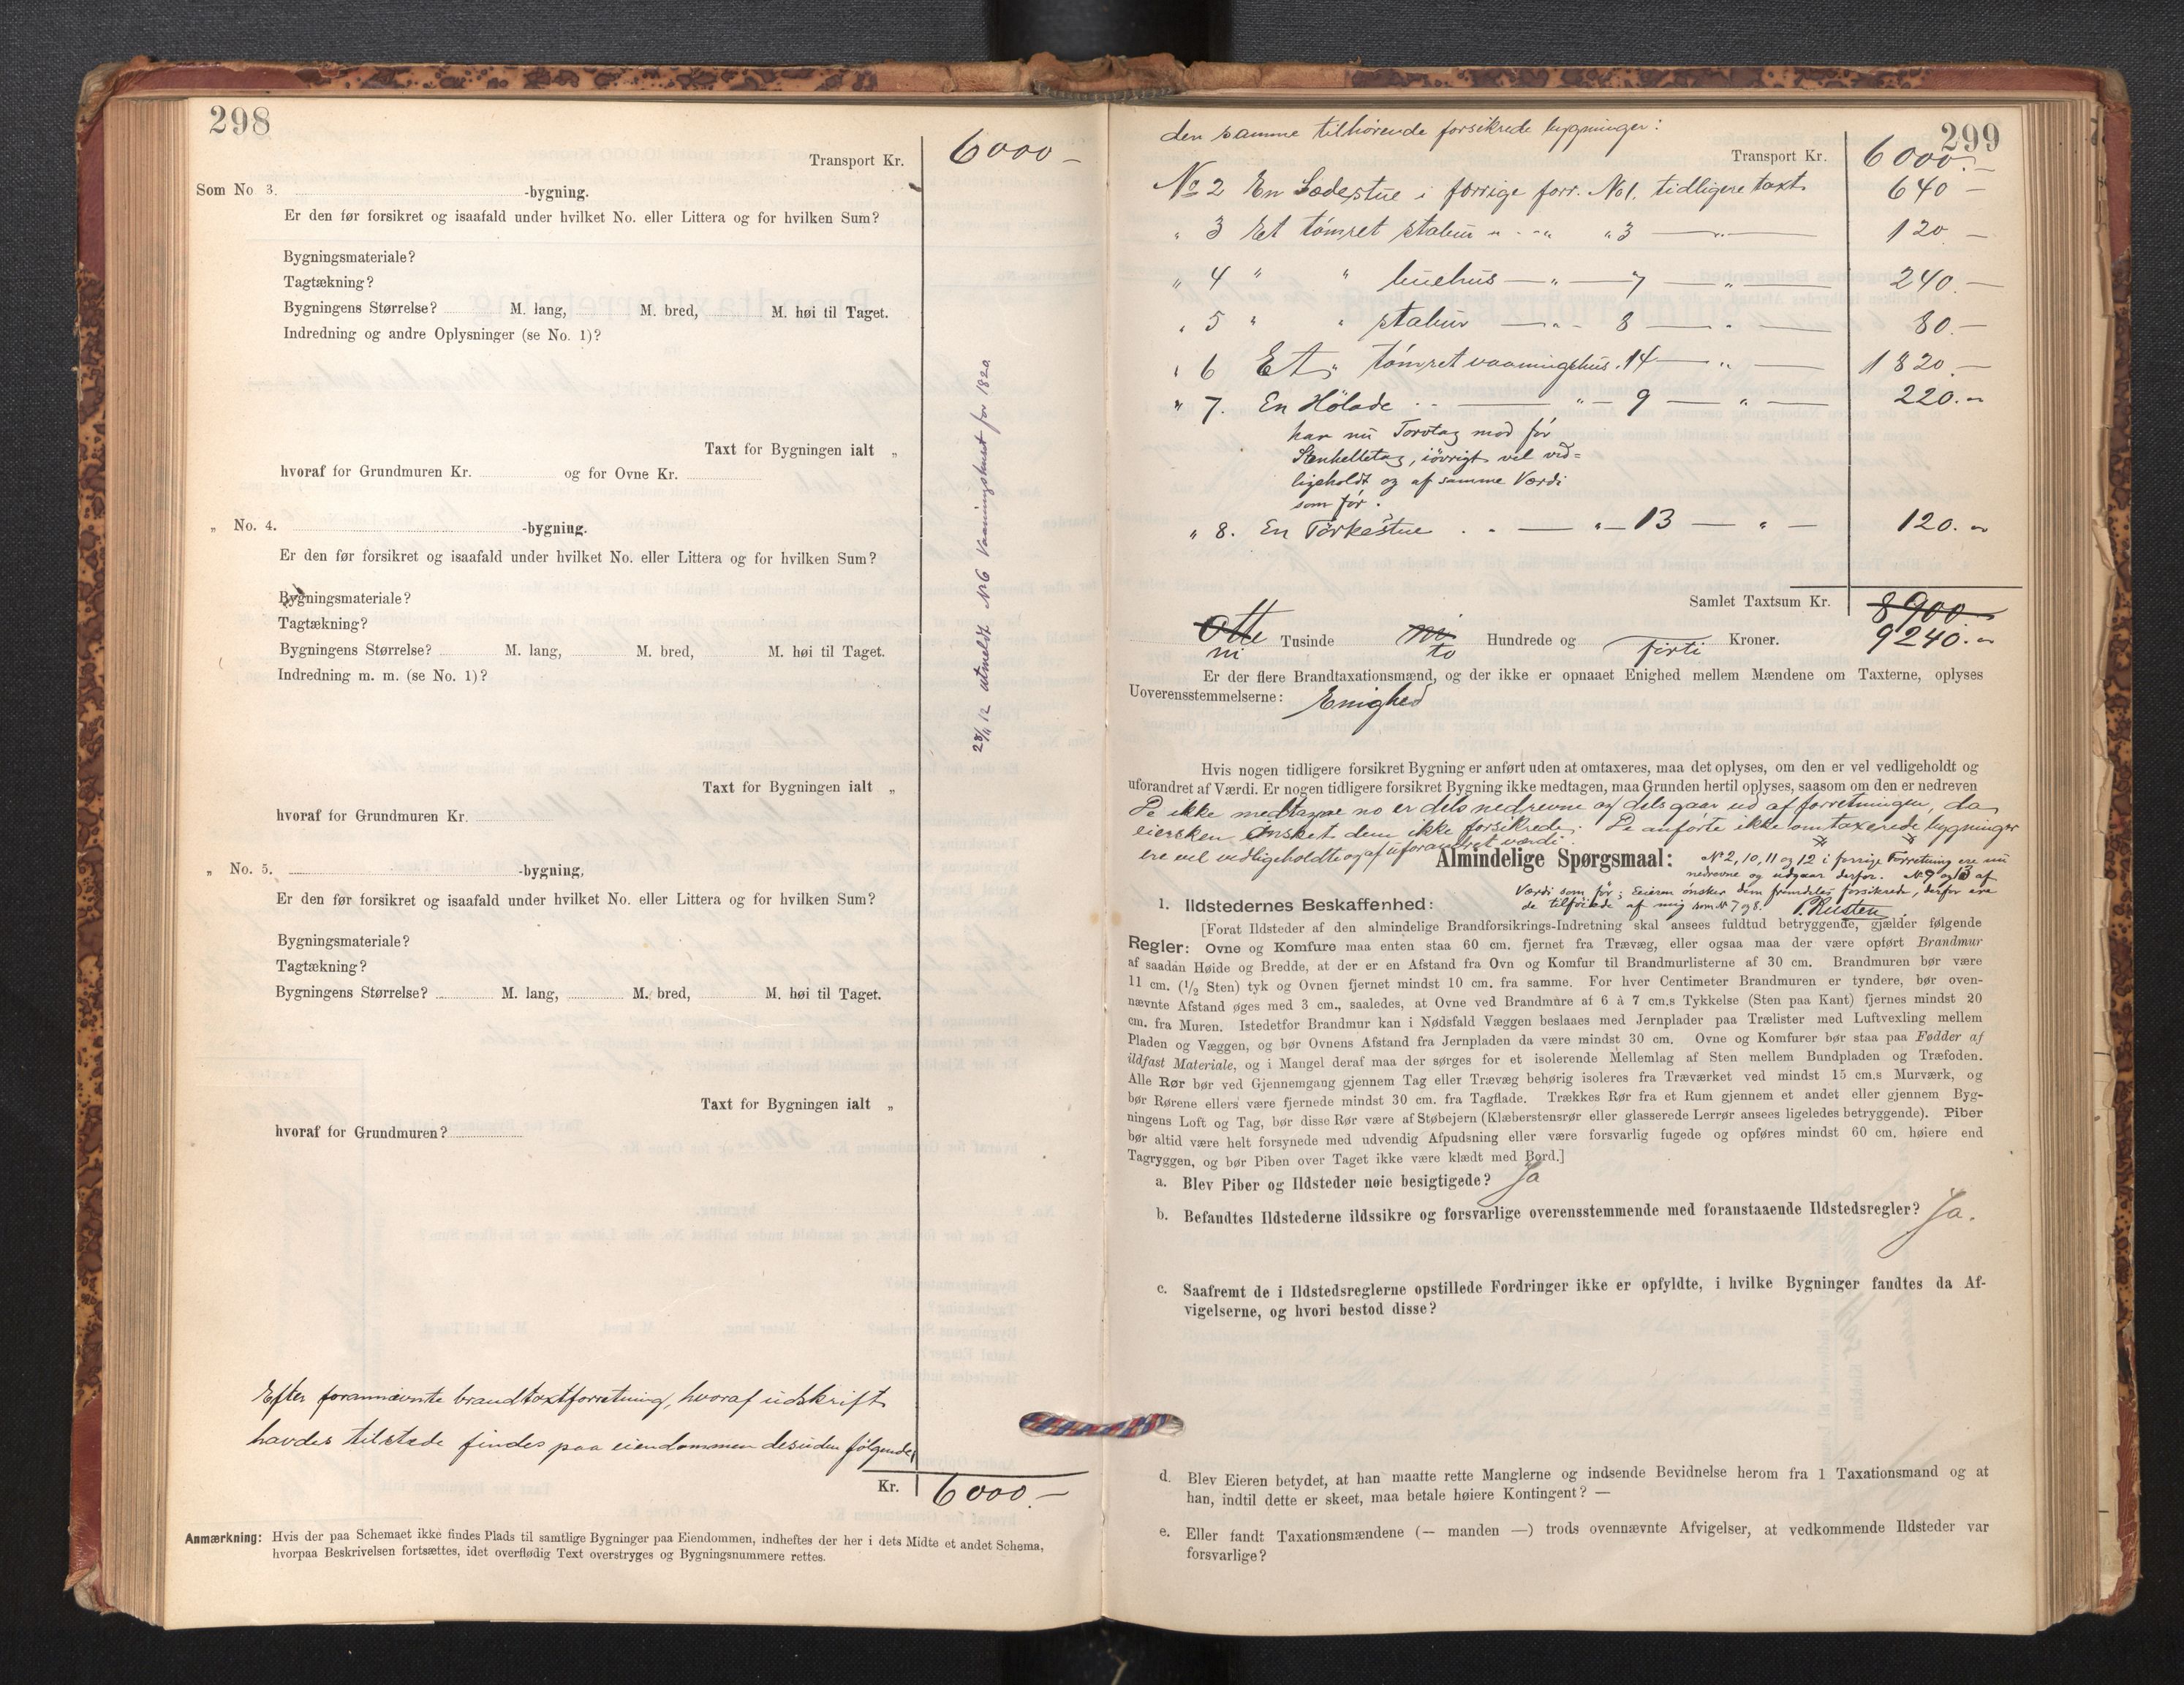 298
Transport Kr. 6000 –
Som No 3. -bygning.
Er den før forsikret og isaafald under hvilket No. eller Littera og for hvilken Sum?
Bygningsmateriale?
Tagtækning?
Bygningens Størrelse? M. lang, M. bred, M. høi til Taget.
Indredning og andre Oplysninger (se No. 1)?
Taxt for Bygningen ialt „
hvoraf for Grundmuren Kr. og for Ovne Kr.
„ No. 4. -bygning.
Er den før forsikret og isaafald under hvilket No. eller Littera og for hvilken Sum?
Bygningsmateriale?
Tagtækning?
Bygningens Størrelse? M. lang, M. bred, M. høi til Taget.
Indredning m. m. (se No. 1)?
Taxt for Bygningen ialt „
hvoraf for Grundmuren Kr.
„ No. 5. -bygning,
Er den før forsikret og isaafald under hvilket No. eller Littera og for hvilken Sum?
Bygningsmateriale?
Tagtækning?
Bygningens Størrelse? M. lang, M. bred, M. høi til Taget.
Taxt for Bygningen ialt „
hvoraf for Grundmuren?
Efter forannævnte brandtaxtforretning, hvoraf udskrift
havdes tilstede findes paa eiendommen desuden følgende
Kr. 6000. –
Anmærkning: Hvis der paa Schemaet ikke findes Plads til samtlige Bygninger paa Eiendommen, indheftes der her i dets Midte et andet Schema,
hvorpaa Beskrivelsen fortsættes, idet overflødig Text overstryges og Bygningsnummere rettes.
28/11 12 utmeldt Nr 6 Vaaningshuset for 1820
299
den samme tilhørende forsikrede bygninger:
Transport Kr. 6000. –
No 2 En Sødestue i forrige forr. No 1. tidligere taxt 640 –
„ 3 Et tømret stabur „ - „ „ 3 — „ — 120 –
„ 4 „ „ buehus — „ — 7 — „ — 240. –
„ 5 „ „ stabur — „ - 8 — „ — 80. –
„ 6 Et „ tømret vaaningshus. 14 — „ — 1820. –
„ 7. En Hølade .. — „ — 9 — „ — 220. „
har nu Torvtag mod før
Stenhelletag, iøvrigt vel ved=
ligeholdt og af samme Værdi
som før.
„ 8. En Tørkestue . . — „ — 13 — „ — 120. „
Samlet Taxtsum Kr. 8900
Otte Tusinde ni Hundrede og firti Kroner. 9240. „
ni to
Er der flere Brandtaxationsmænd, og der ikke er opnaaet Enighed mellem Mændene om Taxterne, oplyses
Uoverensstemmelserne: Enighed
Hvis nogen tidligere forsikret Bygning er anført uden at omtaxeres, maa det oplyses, om den er vel vedligeholdt og
uforandret af Værdi. Er nogen tidligere forsikret Bygning ikke medtagen, maa Grunden hertil oplyses, saasom om den er nedreven
De ikke medtagne no er dels nedrevne og dels gaar ud af forretningen, da
eiersken ønsket dem ikke forsikrede. De anførte ikke omtaxerede bygninger
ere vel vedligeholdte og af uforandret værdi.
Almindelige Spørgsmaal:
No 2, 10, 11 og 12 i forrige Forretning ere nu
nedrevne og udgaar derfor. No 9 og 13 af
Værdi som før; Eieren ønsker dem fremdeles forsikrede, derfor ere
de tilføiede af mig som No 7 og 8. P. Rusten.
1. Ildstedernes Beskaffenhed:
[Forat Ildsteder af den almindelige Brandforsikrings-Indretning skal ansees fuldtud betryggende, gjælder følgende
Regler: Ovne og Komfure maa enten staa 60 cm. fjernet fra Trævæg, eller ogsaa maa der være opført Brandmur
af saadan Høide og Bredde, at der er en Afstand fra Ovn og Komfur til Brandmurlisterne af 30 cm. Brandmuren bør være
11 cm. (1/2 Sten) tyk og Ovnen fjernet mindst 10 cm. fra samme. For hver Centimeter Brandmuren er tyndere, bør oven-
nævnte Afstand øges med 3 cm., saaledes, at Ovne ved Brandmure af 6 à 7 cm.s Tykkelse (Sten paa Kant) fjernes mindst 20
cm. fra Muren. Istedetfor Brandmur kan i Nødsfald Væggen beslaaes med Jernplader paa Trælister med Luftvexling mellem
Pladen og Væggen, og bør Ovnens Afstand fra Jernpladen da være mindst 30 cm. Ovne og Komfurer bør staa paa Fødder af
ildfast Materiale, og i Mangel deraf maa der sørges for et isolerende Mellemlag af Sten mellem Bundpladen og Træfoden.
Alle Rør bør ved Gjennemgang gjennem Tag eller Trævæg behørig isoleres fra Træværket ved mindst 15 cm.s Murværk, og
bør Rørene ellers være fjernede mindst 30 cm. fra Tagflade. Trækkes Rør fra et Rum gjennem et andet eller gjennem Byg-
ningens Loft og Tag, bør disse Rør være af Støbejern (Klæberstensrør eller glasserede Lerrør ansees ligeledes betryggende). Piber
bør altid være helt forsynede med udvendig Afpudsning eller være forsvarlig fugede og opføres mindst 60 cm. høiere end
Tagryggen, og bør Piben over Taget ikke være klædt med Bord.]
a. Blev Piber og Ildsteder nøie besigtigede? Ja
b. Befandtes Ildstederne ildssikre og forsvarlige overensstemmende med foranstaaende Ildstedsregler? Ja.
c. Saafremt de i Ildstedsreglerne opstillede Fordringer ikke er opfyldte, i hvilke Bygninger fandtes da Af-
vigelserne, og hvori bestod disse?
d. Blev Eieren betydet, at han maatte rette Manglerne og indsende Bevidnelse herom fra 1 Taxationsmand og at
han, indtil dette er skeet, maa betale høiere Kontingent? —
e. Eller fandt Taxationsmændene (— manden —) trods ovennævnte Afvigelser, at vedkommende Ildsteder var
forsvarlige?